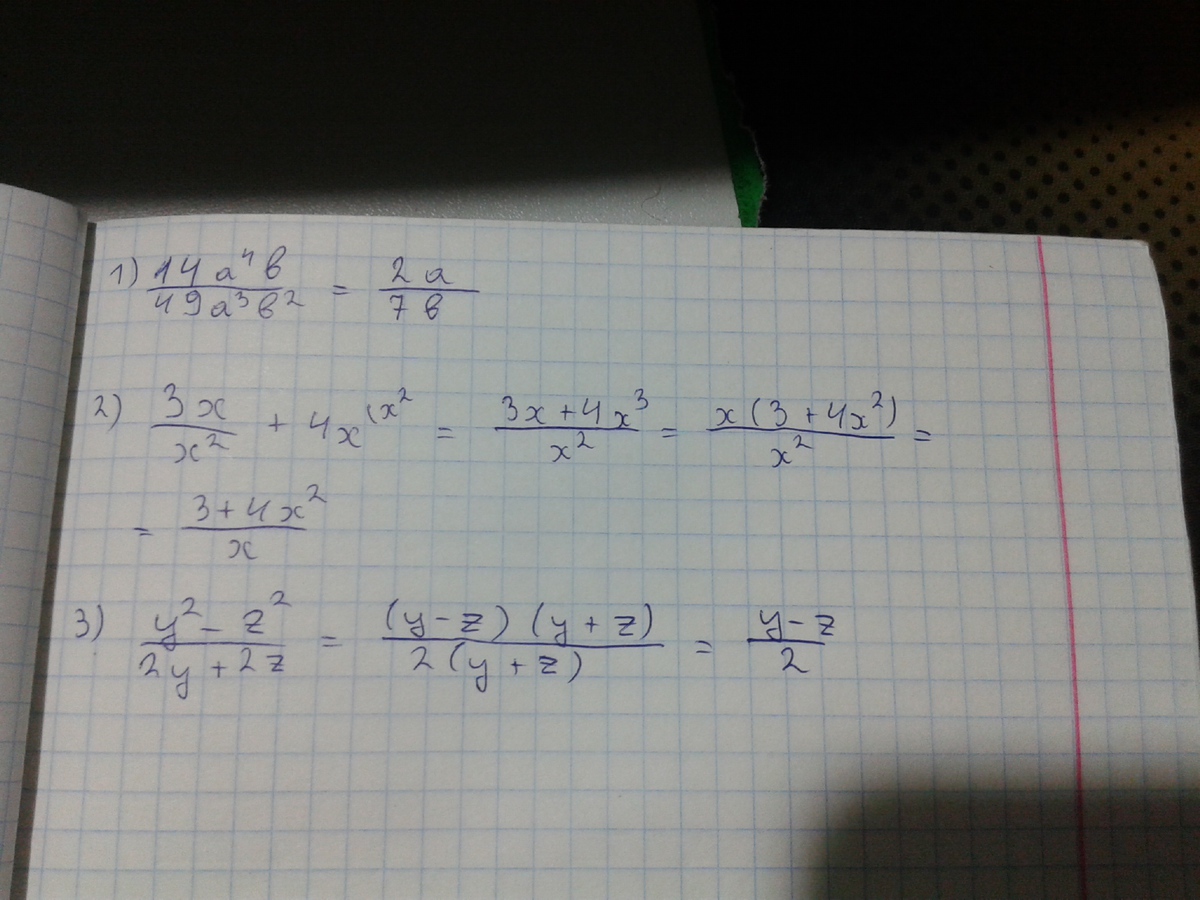 1) 14a⁴b / 49a³b² = 2a / 7b
2) 3x / x² + 4x^(x² = 3x + 4x³ / x² = x(3 + 4x²) / x² =
= 3 + 4x² / x
3) y² - z² / 2y + 2z = (y - z)(y + z) / 2(y + z) = y - z / 2